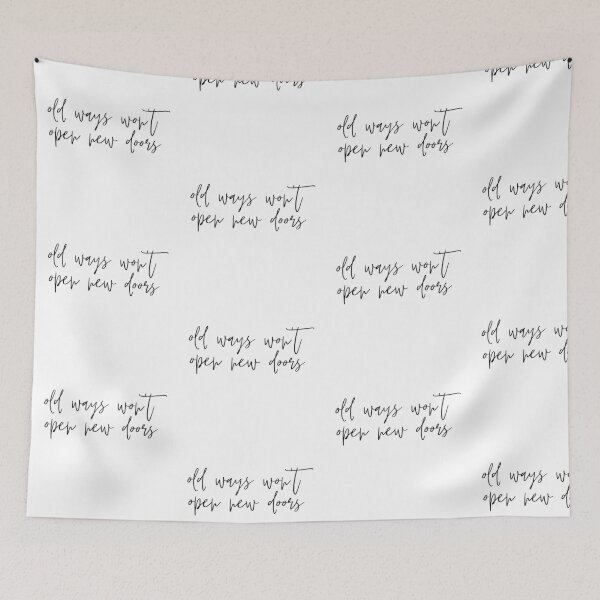 open new
open new doors
old ways won't
open new doors
old ways won't
open new doors
old ways
open new
old ways won't
open new doors
old ways won't
open new doors
old ways won't
open new doors
old ways
open new
old ways won't
open new doors
old ways won't
open new doors
old ways won't
open new doors
old ways
open new
old ways won't
open new doors